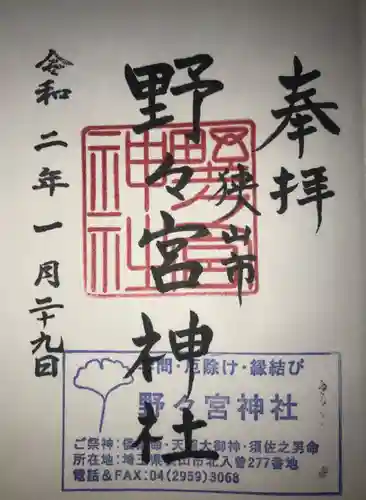 奉拝
狭山市
野々宮神社
令和二年一月二十九日
野々宮神社
学問・厄除け・縁結び
野々宮神社
ご祭神：倭姫命・天照大御神・須佐之男命
所在地：埼玉県狭山市北入曽277番地
電話＆FAX：04(2959)3068